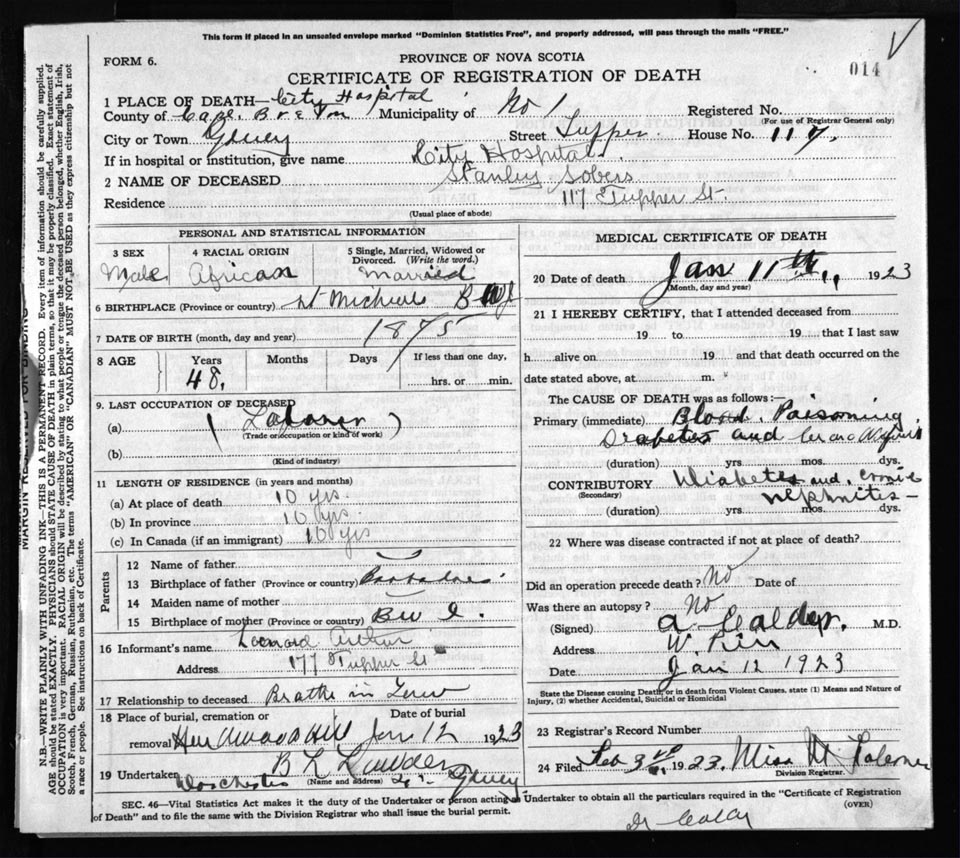 This form if placed in an unsealed envelope marked "Dominion Statistics Free", and properly addressed, will pass through the mails "FREE."
FORM 6.
PROVINCE OF NOVA SCOTIA
014
CERTIFICATE OF REGISTRATION OF DEATH
1 PLACE OF DEATH—City Hospital
County of Cape Municipality of No 1 Registered No.
(For use of Registrar General only)
City or Town Street Tupper House No. 117.
If in hospital or institution, give name City Hospital
2 NAME OF DECEASED Stanley Sobers
Residence 117 Tupper St.
(Usual place of abode)
PERSONAL AND STATISTICAL INFORMATION
3 SEX 4 RACIAL ORIGIN 5 Single, Married, Widowed or Divorced. (Write the word.)
Male African Married
6 BIRTHPLACE (Province or country) St B W I
7 DATE OF BIRTH (month, day and year) 1875
8 AGE Years Months Days If less than one day,
48. hrs. or min.
9. LAST OCCUPATION OF DECEASED
(a) (Laborer)
(Trade or occupation or kind of work)
(b)
(Kind of industry)
11 LENGTH OF RESIDENCE (in years and months)
(a) At place of death 10 yrs.
(b) In province 10 yrs.
(c) In Canada (if an immigrant) 10 yrs
Parents
12 Name of father
13 Birthplace of father (Province or country) Barbadoes
14 Maiden name of mother
15 Birthplace of mother (Province or country) B W I.
16 Informant's name Leonard
Address 177 Tupper St
17 Relationship to deceased in Law
18 Place of burial, cremation or removal Date of burial
Hardwood Hill Jan 12 1923
19 Undertaker B L
(Name and address)
Dorchester St.
MEDICAL CERTIFICATE OF DEATH
20 Date of death Jan 11th, 1923
(Month, day and year)
21 I HEREBY CERTIFY, that I attended deceased from
19 to 19 that I last saw
h alive on 19 and that death occurred on the
date stated above, at m.
The CAUSE OF DEATH was as follows:—
Primary (immediate) Blood Poisoning
Diabetes and
(duration) yrs. mos. dys.
CONTRIBUTORY Diabetes and
(Secondary) Nephritis—
(duration) yrs. mos. dys.
22 Where was disease contracted if not at place of death?
Did an operation precede death? No Date of
Was there an autopsy? No
(Signed) A Calder. M.D.
Address W.
Date Jan 12 1923
State the Disease causing Death, or in death from Violent Causes, state (1) Means and Nature of
Injury, (2) whether Accidental, Suicidal or Homicidal
23 Registrar's Record Number
24 Filed Feb 3rd 1923. Miss M
Division Registrar.
SEC. 46—Vital Statistics Act makes it the duty of the Undertaker or person acting as Undertaker to obtain all the particulars required in the "Certificate of Registration
of Death" and to file the same with the Division Registrar who shall issue the burial permit. (OVER)
N.B.—WRITE PLAINLY WITH UNFADING INK—THIS IS A PERMANENT RECORD. Every item of information should be carefully supplied.
AGE should be stated EXACTLY. PHYSICIANS should STATE CAUSE OF DEATH in plain terms, so that it may be properly classified. Exact statement of
OCCUPATION is very important. RACIAL ORIGIN will be described by stating to what people or tongue the deceased person belonged, whether English, Irish,
Scotch, French, German, Russian, Ruthenian, etc. The terms "AMERICAN" OR "CANADIAN" MUST NOT BE USED as they express citizenship but not
a race or people. See instructions on back of Certificate.